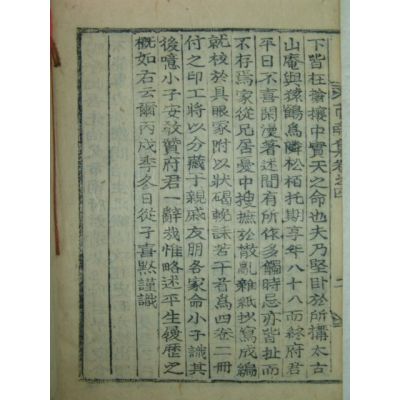 下皆枉搶攘中實天之命也夫乃堅卧於所搆太古
山庵與猿鶴爲隣松栢托期享年八十八而終府君
平日不喜閑漫著述間有所作多觸時忌亦皆扯而
不存爲家從兄居憂中摭於散亂雜紙抄寫成編
就校於具眼家附以狀碣輓誄若干著爲四卷二冊
付之印工將以分藏于親戚友朋各家命小子識其
後噫小子安敢贊府君一辭哉惟略述平生履歷之
概如右云爾丙戌季冬日從子喜默謹識